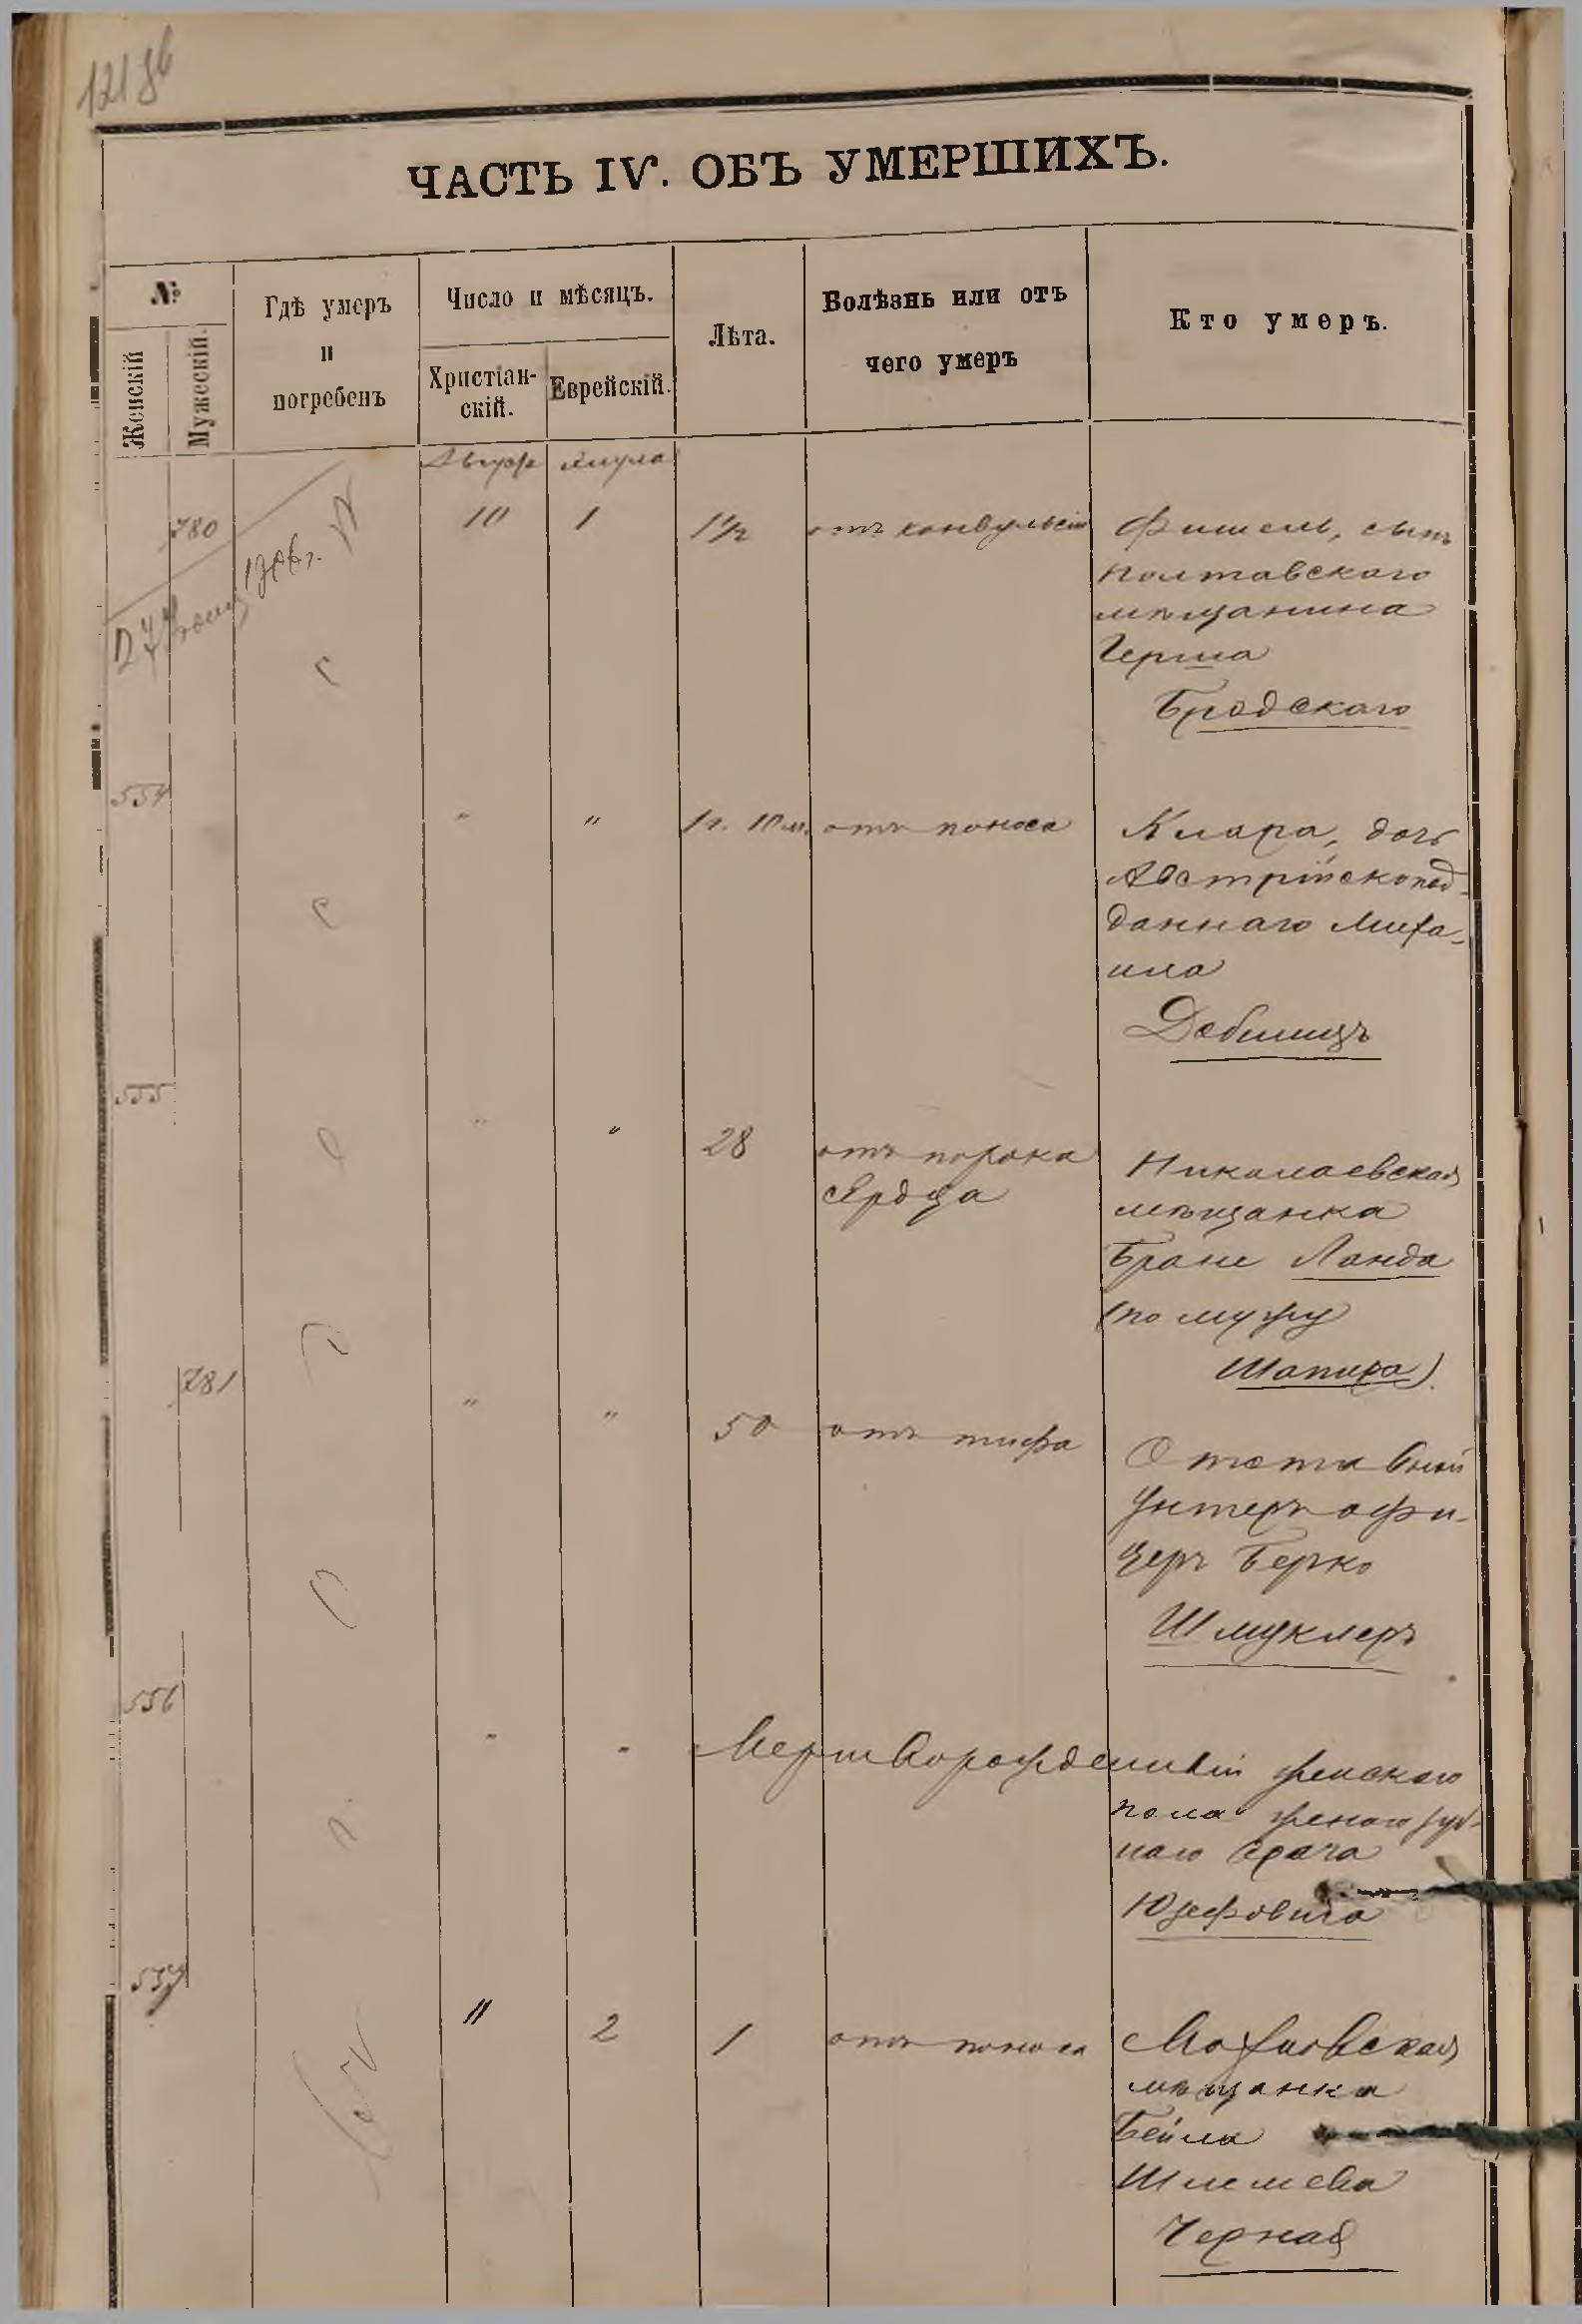 ЧАСТЬ IV. ОБЪ УМЕРШИХЪ.
№
Женскій
Мужескій.
Гдѣ умеръ
и
погребенъ
Число и мѣсяцъ.
Христіан-
скій.
Еврейскій.
Лѣта.
Болѣзнь или отъ
чего умеръ
Кто умеръ.
Август Элула
780 10 1 1½ отъ конвульсій Фишель, сынъ
полтавскаго
мѣщанина
Герша
Бродскаго
554 " " 1 г. 10 м. отъ поноса Клара, дочь
Австрійскопод-
даннаго Миха-
ила
555 " " 28 отъ порока
сердца
Николаевская
мѣщанка
Бране Ланда
(по мужу
Шапиро).
781 " " 50 отъ тифа
Отставной
унтеръ офи-
церъ Берко
Шмуклеръ
556 " " Мертворожденный женскаго
пола
наго врача
Юзефовича
557 11 2 1 отъ поноса
мѣщанка
Бейла
Шлемева
Черная